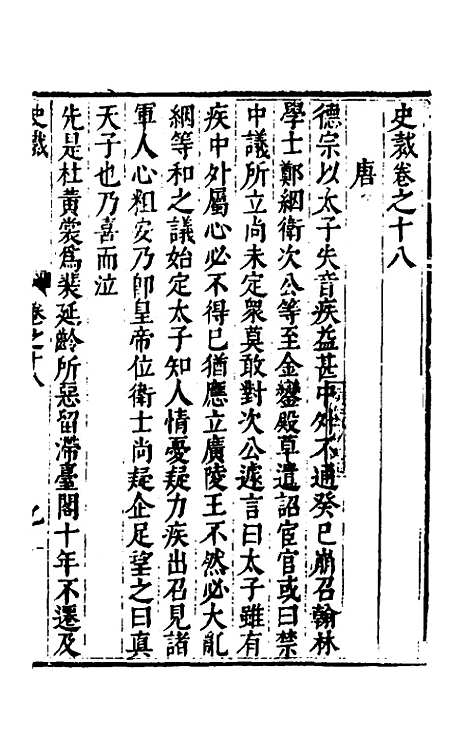 史裁卷之十八
唐
德宗以太子失音疾益甚中外不通癸巳崩召翰林
學士鄭絪衛次公等至金鑾殿草遺詔宦官或曰禁
中議所立尚未定衆莫敢對次公遽言曰太子雖有
疾中外屬心必不得已猶應立廣陵王不然必大亂
綱等和之議始定太子知人情憂疑力疾出召見諸
軍人心粗安乃卽皇帝位衛士尚疑企足望之曰真
天子也乃喜而泣
先是杜黃裳爲裴延齡所惡留滯臺閣十年不遷及
史裁
卷之十八